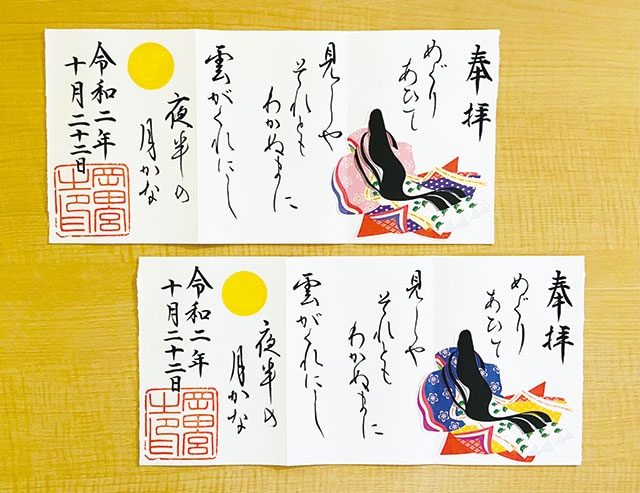 奉拝
めぐり
あひて
見しや
それとも
わかぬまに
雲がくれにし
夜半の
月かな
令和二年
十月二十二日
奉拝
めぐり
あひて
見しや
それとも
わかぬまに
雲がくれにし
夜半の
月かな
令和二年
十月二十二日